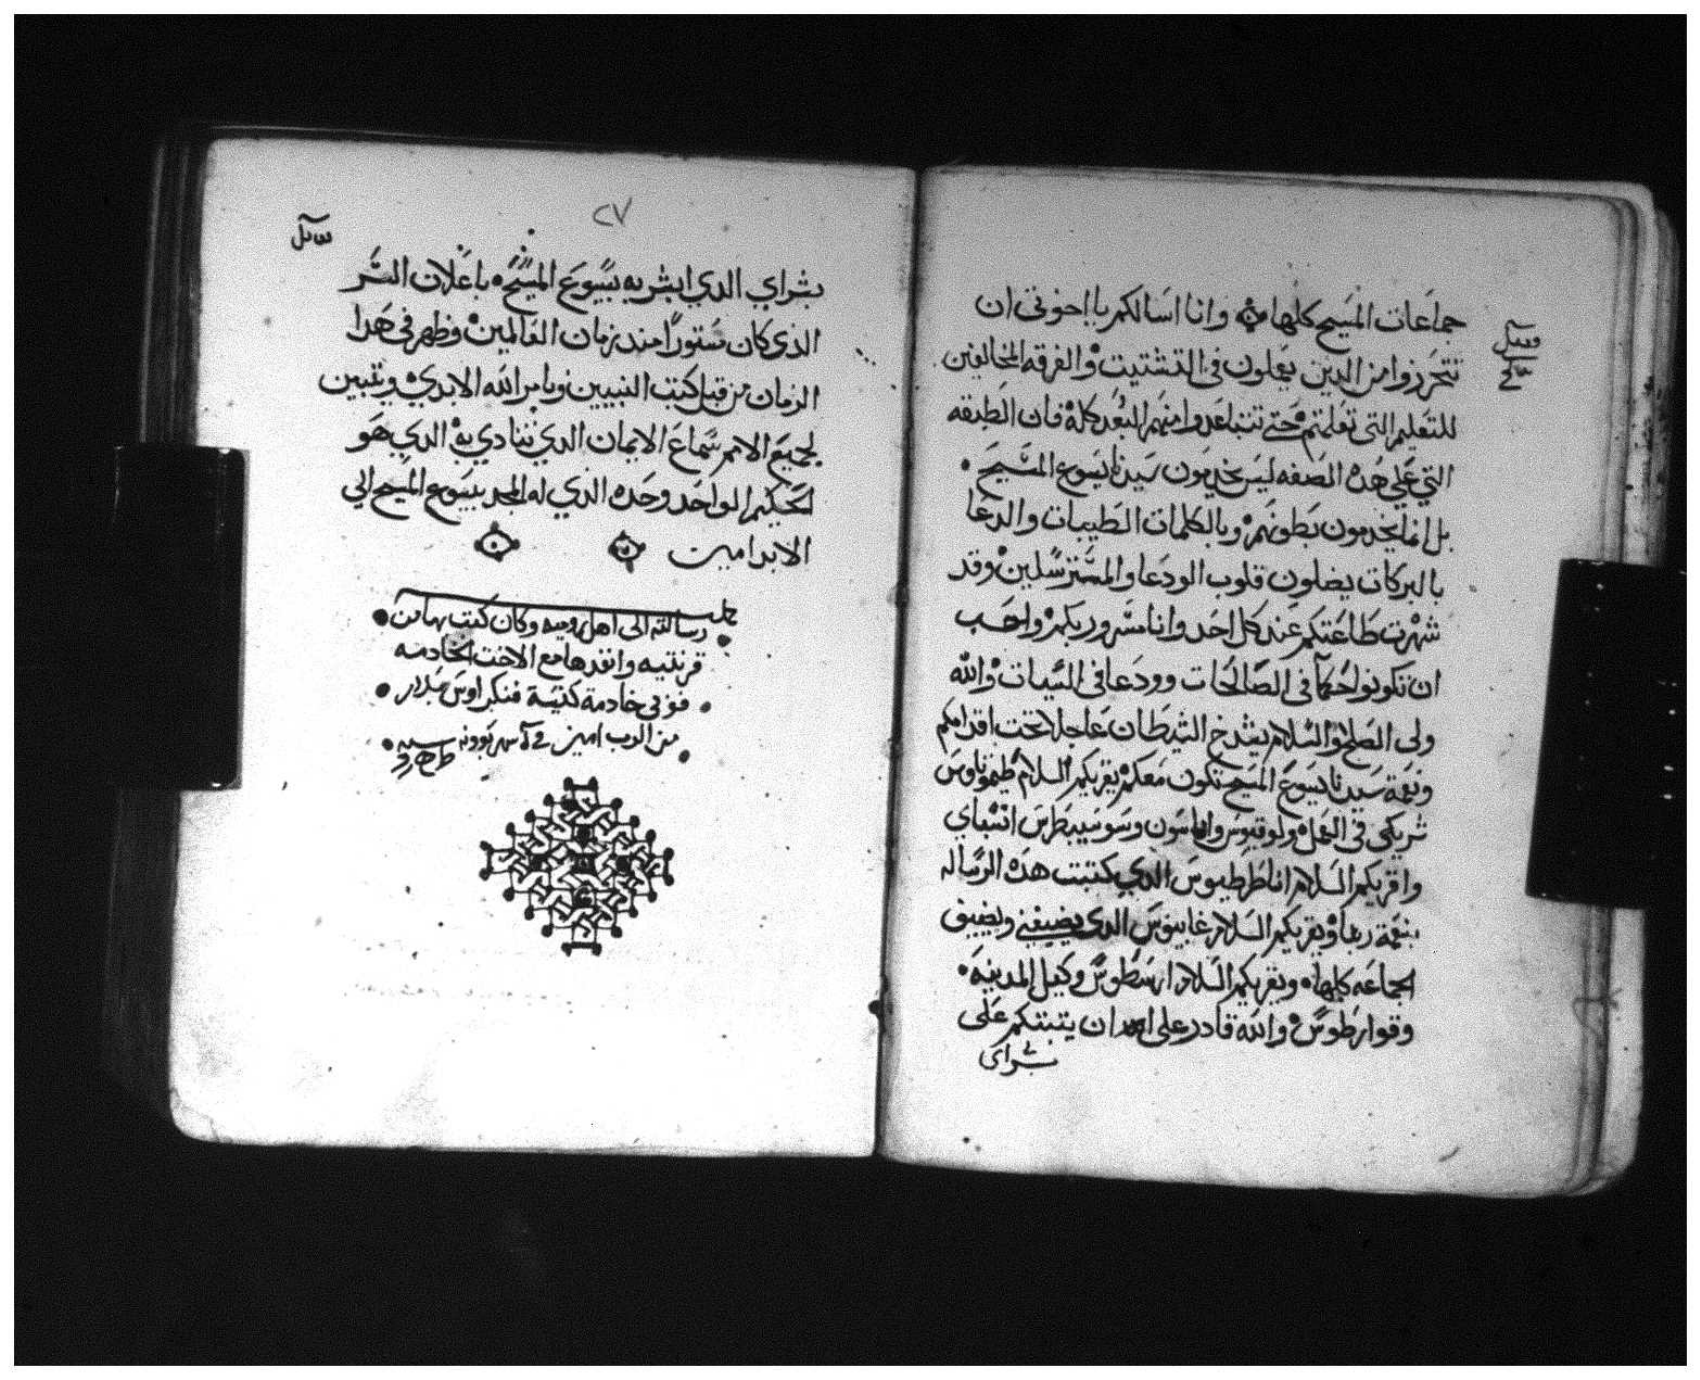 جماعات المسيح كلها وانا اسالكم يااخوتى ان
تتحرزوا من الدين يعملون فى التشتيت والفرقه المخالفين
للتعليم التى تعلمتم حتى تتباعدوا منهم البعد كله فان الطبقه
التي علي هده الصفه ليس يخدمون سيدنا يسوع المسيح
بل انما يخدمون بطونهم وبالكلمات الطيبات والدعا
بالبركات يضلون قلوب الودعا والمسترسلين وقد
شهرت طاعتكم عند كل احد وانا مسرور بكم واحب
ان تكونوا حكمآ فى الصالحات وودعا فى السيات والله
ولى الصلح والسلام يشدخ الشيطان عاجلا تحت اقدامكم
ونعمة سيدنا يسوع المسيح تكون معكم يقريكم السلام طيموتاوس
شريكى فى العمل ولوقيوس واياسون وسوسيبطرس انسباي
واقريكم السلام انا طرطيوس الدي كتبت هده الرساله
بنعمة ربنا ويقريكم السلام غاييوس الدى يضيفنى ويضيف
الجماعه كلها ويقريكم السلام ارسطوس وكيل المدينه
وقوارطوس والله قادر على ان يتبتكم على
بشراى
٢٧
بشراي الدي ابشر به بيسوع المسيح باعلان السر
الذى كان مستورا مند زمان العالمين وظهر فى هدا
الزمان من قبل كتب النبيين وبامر الله الابدي ويتبين
لجميع الامم سماع الايمان الدي ننادي به الدي هو
الحكيم الواحد وحده الدي له المجد بيسوع المسيح الي
الابد امين
رسالته الى اهل روميه وكان كتب بها من
قرنتيه وانفدها مع الاخت الخادمه
فوفى خادمة كنيسة
من الرب امين